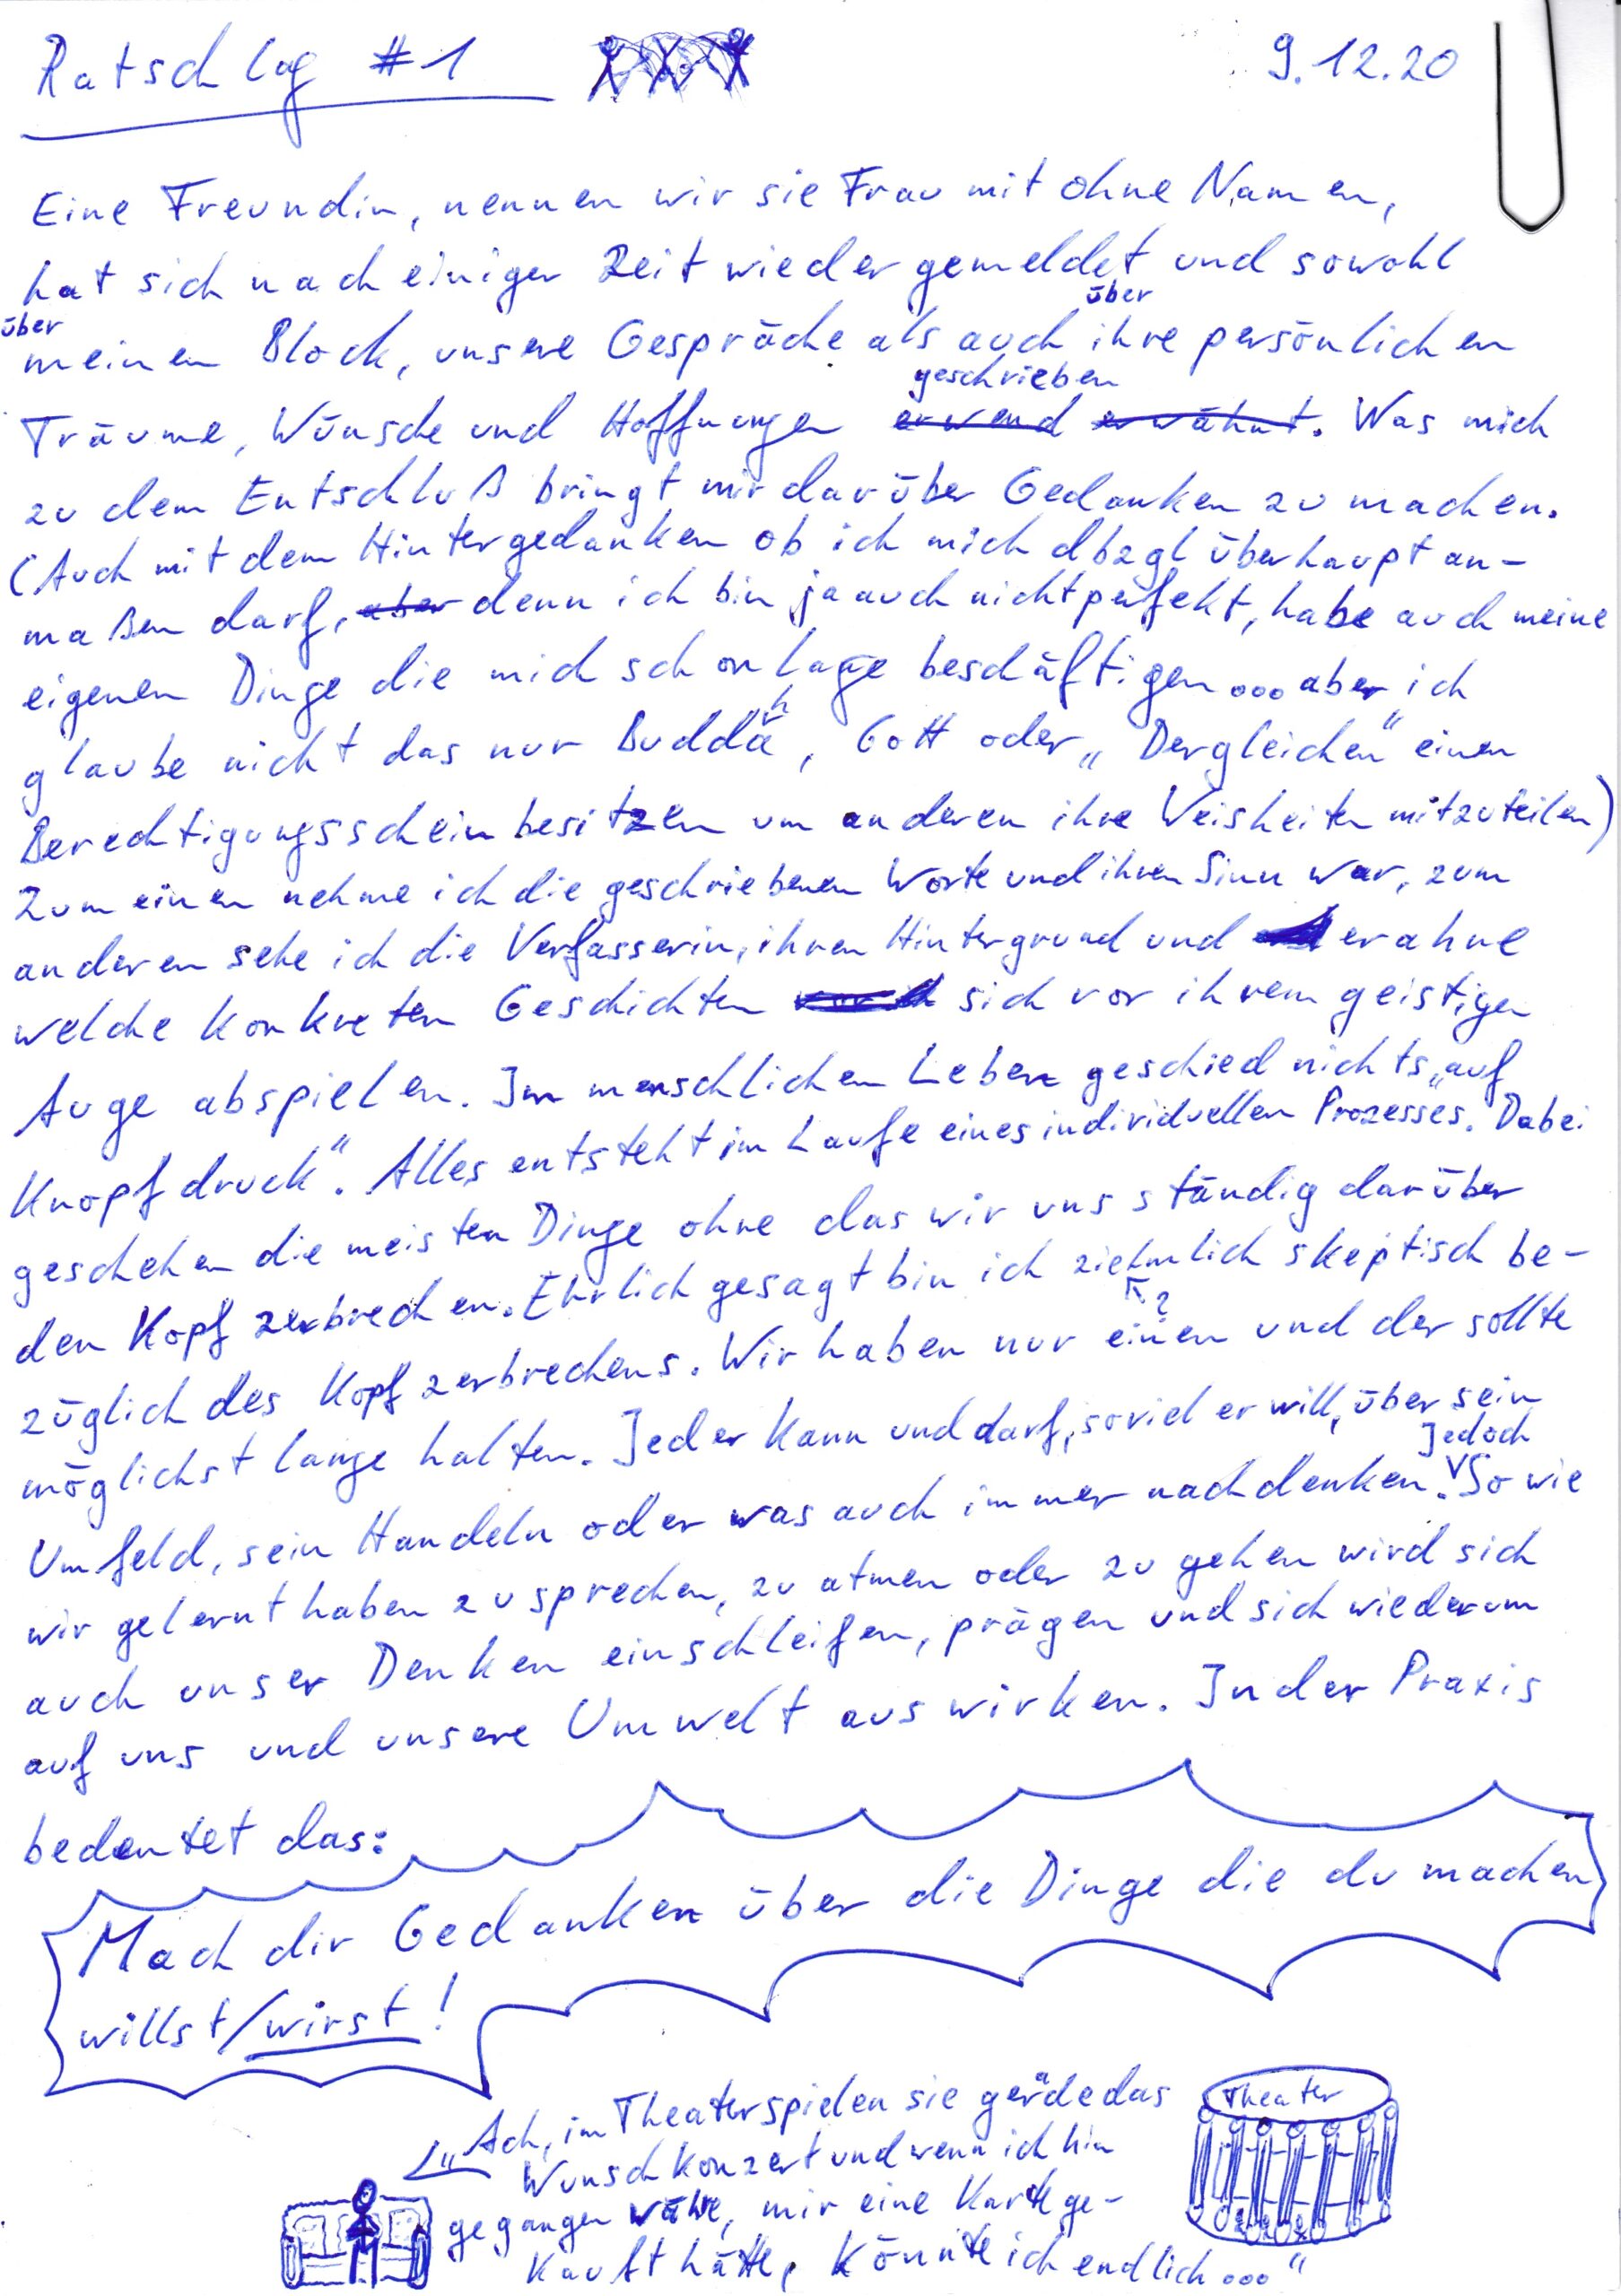 Ratschlag #1
9.12.20
Eine Freundin, nennen wir sie Frau mit ohne Namen,
hat sich nach einiger Zeit wieder gemeldet und sowohl
über über
meinen Block, unsere Gespräche als auch ihre persönlichen
geschrieben
Träume, Wünsche und Hoffnungen erwend erwähnt. Was mich
zu dem Entschluß bringt mir darüber Gedanken zu machen.
(Auch mit dem Hintergedanken ob ich mich dbzgl überhaupt an-
maßen darf, aber denn ich bin ja auch nicht perfekt, habe auch meine
eigenen Dinge die mich schon lage beschäftigen... aber ich
glaube nicht das nur Buddah, Gott oder „Dergleichen“ einen
Berechtigungsschein besitzen um anderen ihre Weisheiten mitzuteilen)
Zum einen nehme ich die geschriebenen Worte und ihren Sinn war, zum
anderen sehe ich die Verfasserin, ihren Hintergrund und erahne
welche konkreten Geschichten sich vor ihrem geistigen
Auge abspielen. Im menschlichen Leben geschied nichts „auf
Knopfdruck“. Alles entsteht im Laufe eines individuellen Prozesses. Dabei
geschehen die meisten Dinge ohne das wir uns ständig darüber
den Kopf zerbrechen. Ehrlich gesagt bin ich ziehmlich skeptisch be-
?
züglich des Kopfzerbrechens. Wir haben nur einen und der sollte
möglichst lange halten. Jeder kann und darf, soviel er will, über sein
Jedoch
Umfeld, sein Handeln oder was auch immer nachdenken. So wie
wir gelernt haben zu sprechen, zu atmen oder zu gehen wird sich
auch unser Denken einschleifen, prägen und sich wiederum
auf uns und unsere Umwelt auswirken. In der Praxis
bedeutet das:
Mach dir Gedanken über die Dinge die du machen
willst/wirst!
„Ach, im Theater spielen sie gerade das
Wunschkonzert und wenn ich hin
gegangen wäre, mir eine Karte ge-
kauft hätte, könnte ich endlich..."
Theater